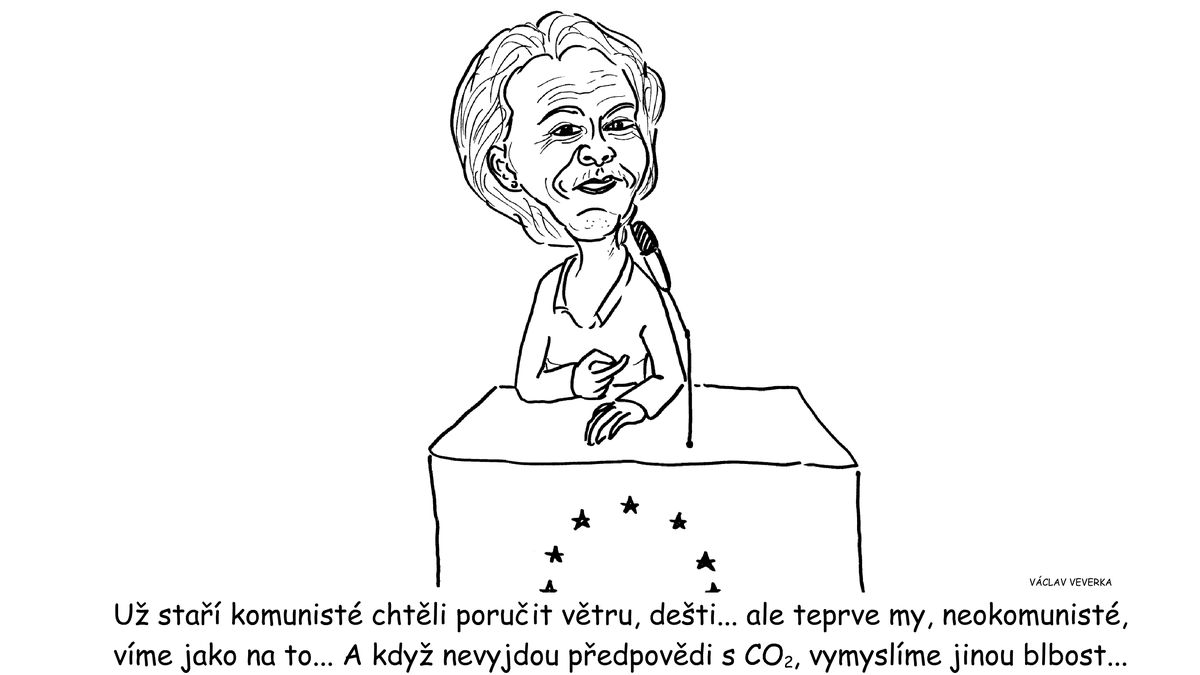 VÁCLAV VEVERKA
Už staří komunisté chtěli poručit větru, dešti... ale teprve my, neokomunisté,
víme jako na to... A když nevyjdou předpovědi s CO₂, vymyslíme jinou blbost...